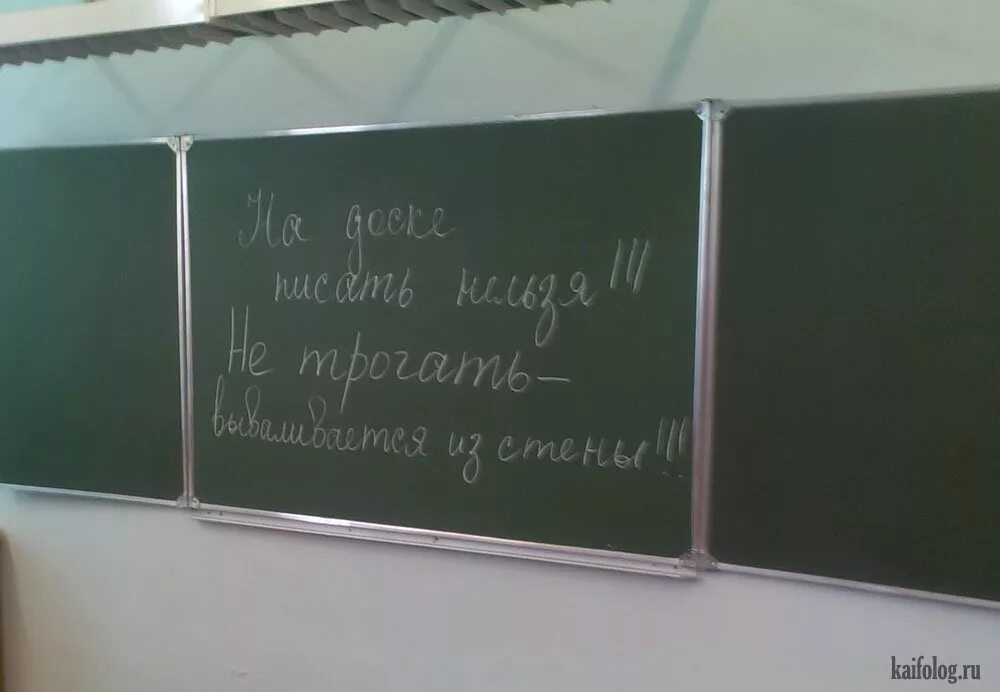 На доске
писать нельзя!!!
Не трогать–
вываливается из стены!!!
kaifolog.ru